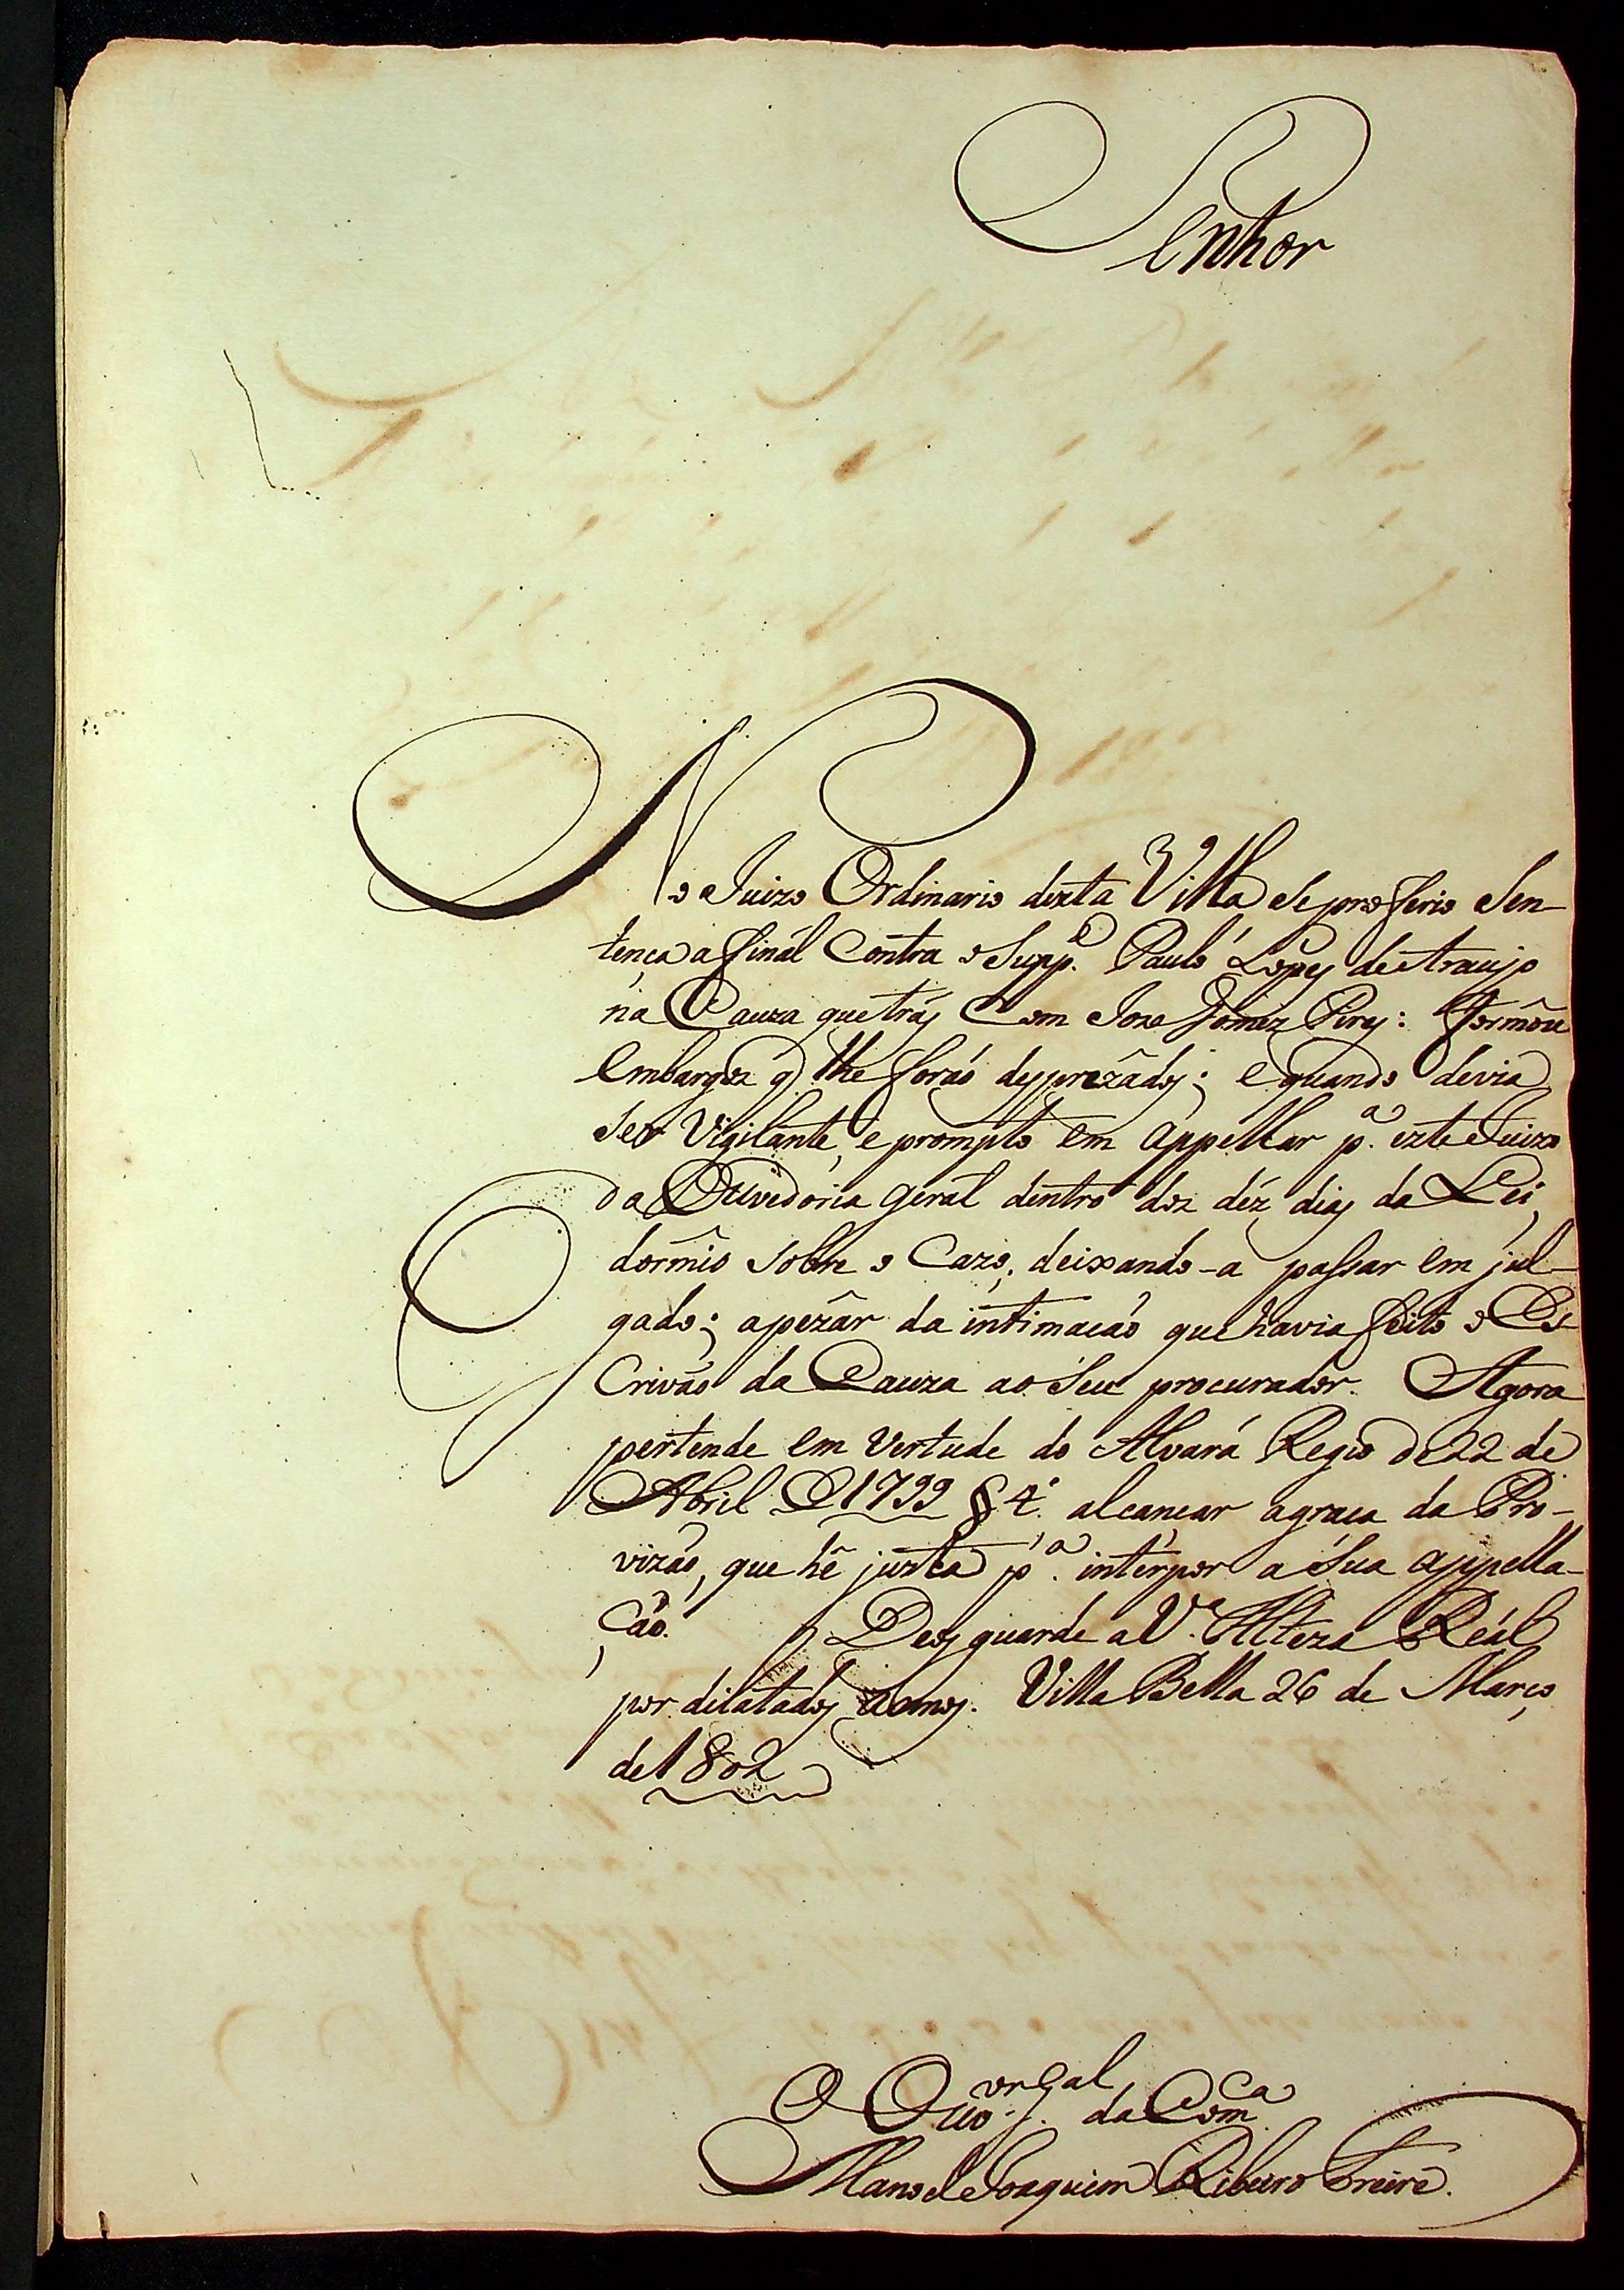 Senhor
No Juizo Ordinario dezta Villa Se proferio Sen-
tença afinál Contra o Supp.e Paulo Lopes de Araujo
na Cauza que trás Com Joze Gomez Pires: Formôu
Embargoz q̃ lhe foraõ desprezâdos; e quando devia
Ser Vigilante, e prompto em Appellar p.a ezte Juizo
da Ouvedoria geral dentro doz déz dias da Lei,
dormîo Sobre o Cazo, deixando-a passar em jul-
gado; apezâr da intimaçaõ que havia feito o Es
Crivaõ da Cauza ao Seu procurador. Agora
pertende em Vertude do Alvará Regio de 22 de
Abril D 1799 § 4.º alcançar a graça da Pro-
vizaõ, que hê juzta p.a interpor a Sua appella-
çaõ. Deos guarde a V.a Alteza Reál
por dilatados annos. Villa Bella 26 de Março
de 1802
O Ouv.or g.al da Com.ca
Manoel Joaquim Ribeiro Freire.